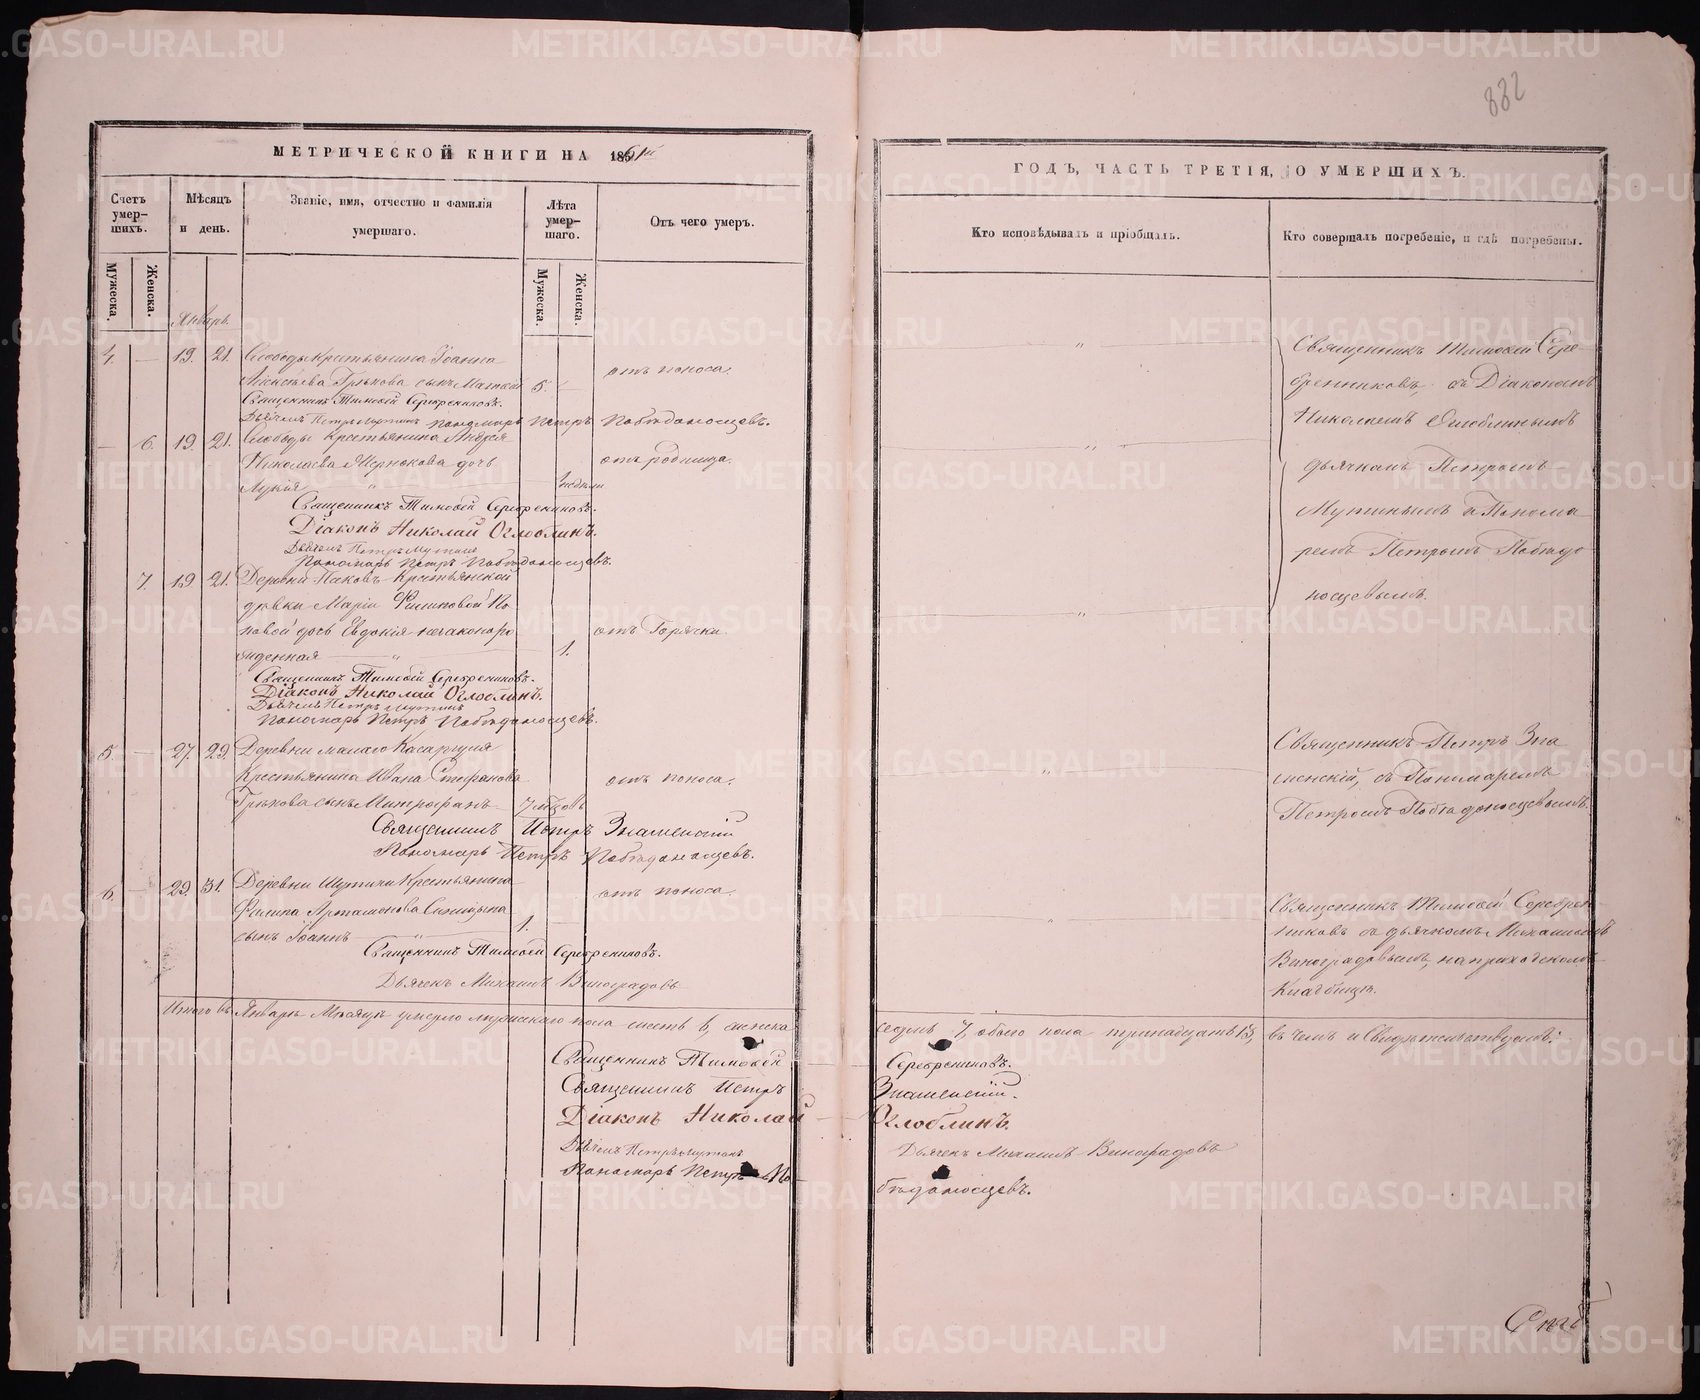 882
МЕТРИЧЕСКОЙ КНИГИ НА 1861й
ГОДЪ, ЧАСТЬ ТРЕТІЯ, О УМЕРШИХЪ.
Счетъ умер-
шихъ.
Мѣсяцъ
и день.
Званіе, имя, отчество и фамилія
умершаго.
Лѣта
умер-
шаго.
Отъ чего умеръ.
Кто исповѣдывалъ и пріобщалъ.
Кто совершалъ погребеніе, и гдѣ погребены.
Мужеска.
Женска.
Мужеска.
Женска.
Январь.
4. — 19. 21. Слободы Крестьянина Іоанна
Алексѣева Грѣхова сынъ 5.
отъ поноса.
Священникъ Тимоѳей Серебрениковъ.
Дьячекъ Петръ Мутинъ Пономарь Петръ Побѣдоносцевъ.
— 6. 19. 21. Слободы Крестьянина Андрея
Николаева дочь
отъ родимца.
Лукія
недѣли
Священникъ Тимоѳей Серебрениковъ.
Діаконъ Николай Оглоблинъ.
Дьячекъ Петръ Мутинъ
Пономарь Петръ Побѣдоносцевъ.
7. 19. 21. Деревни Крестьянской
дѣвки Маріи Филиповой По
повой дочь Евдокія незаконоро
отъ Горячки
жденная 1.
Священникъ Тимоѳей Серебрениковъ.
Діаконъ Николай Оглоблинъ.
Дьячекъ Петръ Мутинъ
Пономарь Петръ Побѣдоносцевъ.
5 — 27. 29. Деревни малаго Касаргуля
Крестьянина Ивана Стефанова
отъ поноса.
Грѣхова сынъ Митрофанъ 7 мѣсъ
Священникъ Петръ Знаменскій
Пономарь Петръ Побѣдоносцевъ.
6. — 29. 31. Деревни Шутихи Крестьянина
отъ поноса.
Филипа Артамонова Синицына
сынъ Іоаннъ 1.
Священникъ Тимоѳей Серебрениковъ.
Дьячекъ Михаилъ Виноградовъ
Священникъ Тимоѳей Сере-
бренниковъ, съ Діакономъ
Николаемъ Оглоблинымъ
дьячкомъ Петромъ
Мутинымъ и Понома
ремъ Петромъ Побѣдо
носцевымъ.
Священникъ Петръ Зна
менскій, съ Пономаремъ
Петромъ Побѣдоносцевымъ.
Священникъ Тимоѳей Серебрен-
никовъ съ дьячкомъ Михаиломъ
Виноградовымъ, на приходскомъ
Кладбищѣ.
Итого въ Январѣ Мѣсяцѣ умерло мужескаго пола шесть 6, женска седмь 7, обоего пола тринадцать 13, въ чемъ и Свидѣтельствуемъ:
Священникъ Тимоѳей Серебрениковъ.
Священникъ Петръ Знаменскій.
Діаконъ Николай Оглоблинъ.
Дьячекъ Петръ Мутинъ Дьячекъ Михаилъ Виноградовъ
Пономарь Петръ Побѣдоносцевъ.
METRIKI.GASO-URAL.RU